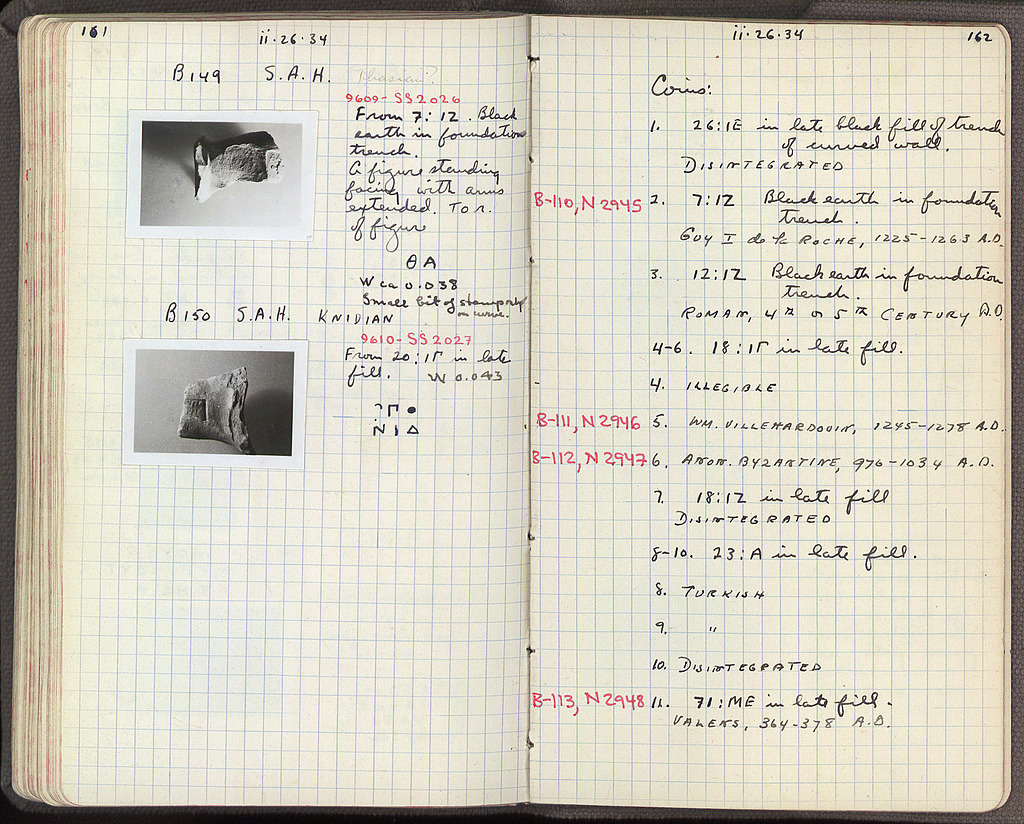 161
ii·26·34
B149 S.A.H. Thasian?
9609- SS2026
From 7:IZ. Black
earth in foundation
trench.
A figure standing
facing with arms
extended. To r.
of figure
ΘΑ
W ca 0.038
Small bit of stamp only
on curve.
B150 S.A.H. KNIDIAN
9610- SS2027
From 20:ΙΓ in late
fill. W 0.043
Π
Ν Ι Δ
ii·26·34
162
Coins:
1. 26:ΙΕ in late black fill of trench
of curved wall.
DISINTEGRATED
B-110, N 2945 2. 7:IZ Black earth in foundation
trench.
GUY I de la ROCHE, 1225-1263 A.D.
3. 12:IZ Black earth in foundation
trench.
ROMAN, 4th or 5th CENTURY A.D.
4-6. 18:ΙΓ in late fill.
4. ILLEGIBLE
B-111, N 2946 5. WM. VILLEHARDOUIN, 1245-1278 A.D.
B-112, N 2947 6. ANON. BYZANTINE, 976-1034 A.D.
7. 18:IZ in late fill
DISINTEGRATED
8-10. 23:A in late fill.
8. TURKISH
9. "
10. DISINTEGRATED
B-113, N 2948 11. 71:ME in late fill.
VALENS, 364-378 A.D.